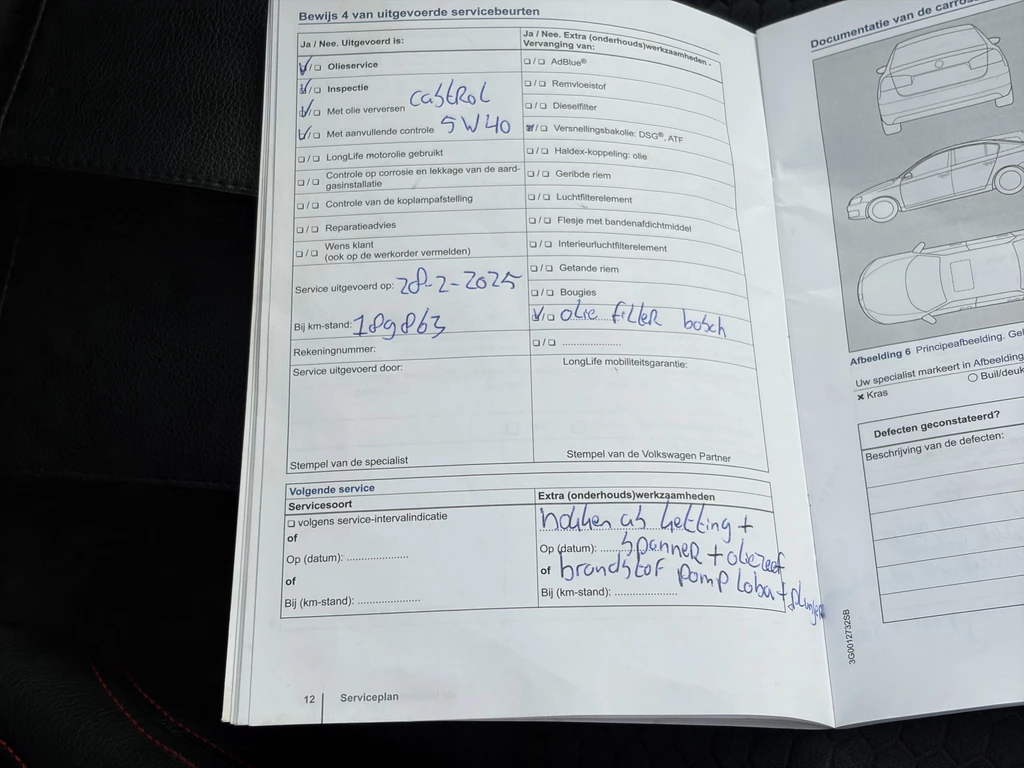 Bewijs 4 van uitgevoerde servicebeurten
Ja / Nee. Uitgevoerd is:
Olieservice
Inspectie
Met olie verversen castRol
Met aanvullende controle 5W40
LongLife motorolie gebruikt
Controle op corrosie en lekkage van de aard-
gasinstallatie
Controle van de koplampafstelling
Reparatieadvies
Wens klant
(ook op de werkorder vermelden)
Service uitgevoerd op: 28-2-2025
Bij km-stand: 189863
Rekeningnummer:
Service uitgevoerd door:
Stempel van de specialist
Ja / Nee. Extra (onderhouds)werkzaamheden -
Vervanging van:
AdBlue®
Remvloeistof
Dieselfilter
Versnellingsbakolie: DSG®, ATF
Haldex-koppeling: olie
Geribde riem
Luchtfilterelement
Flesje met bandenafdichtmiddel
Interieurluchtfilterelement
Getande riem
Bougies
olie filter bosch
LongLife mobiliteitsgarantie:
Stempel van de Volkswagen Partner
Volgende service
Servicesoort
volgens service-intervalindicatie
of
Op (datum):
of
Bij (km-stand):
Extra (onderhouds)werkzaamheden
nokken as ketting +
Op (datum): spanner + oliezeef
of brandstof pomp loba + plunjer
Bij (km-stand):
12 Serviceplan
Documentatie van de
Afbeelding 6 Principeafbeelding.
Uw specialist markeert in Afbeelding
× Kras
Buil/deuk
Defecten geconstateerd?
Beschrijving van de defecten:
3G0012732SB